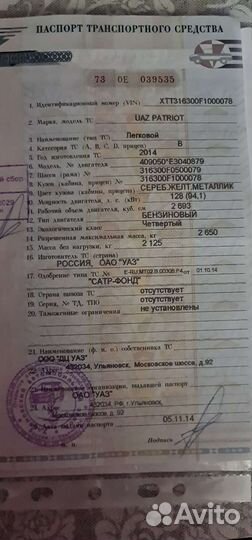 ПАСПОРТ ТРАНСПОРТНОГО СРЕДСТВА
73 ОЕ 039535
1. Идентификационный номер (VIN) XTT316300F1000078
2. Марка, модель ТС UAZ PATRIOT
3. Наименование (тип ТС) Легковой
4. Категория ТС (А, В, С, D, прицеп) В
5. Год изготовления ТС 2014
6. Модель, № двигателя 409050*E3040879
7. Шасси (рама) № 316300F0500079
8. Кузов (кабина, прицеп) № 316300F1000078
9. Цвет кузова (кабины, прицепа) СЕРЕБ.ЖЕЛТ.МЕТАЛЛИК
10. Мощность двигателя, л. с. (кВт) 128 (94,1)
11. Рабочий объем двигателя, куб. см 2 693
12. Тип двигателя БЕНЗИНОВЫЙ
13. Экологический класс Четвертый
14. Разрешенная максимальная масса, кг 2 650
15. Масса без нагрузки, кг 2 125
16. Изготовитель ТС (страна)
РОССИЯ, ОАО "УАЗ"
17. Одобрение типа ТС № от 01.10.14
"САТР-ФОНД"
18. Страна вывоза ТС отсутствует
19. Серия, № ТД, ТПО отсутствует
20. Таможенные ограничения не установлены
21. Наименование (ф. и. о.) собственника ТС
ООО "ДЦ УАЗ"
432034, Ульяновск, Московское шоссе, д.92
Наименование организации, выдавшей паспорт
ОАО "УАЗ"
24. Адрес 432034, РФ, г.Ульяновск,
Московское шоссе, д. 92
25. Дата выдачи паспорта 05.11.14
М. П. Подпись
Avito